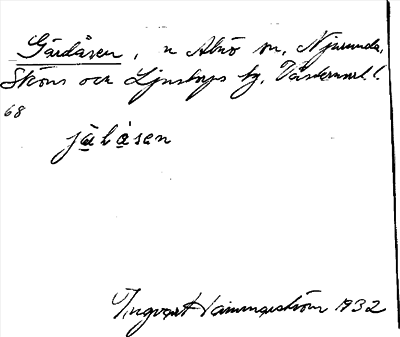 Gärdåsen, n Alnö sn, Njurunda,
Sköns och Ljustorps tg. Västernorrl. l.
68
jälåsen
Ingvart Hammarström 1932